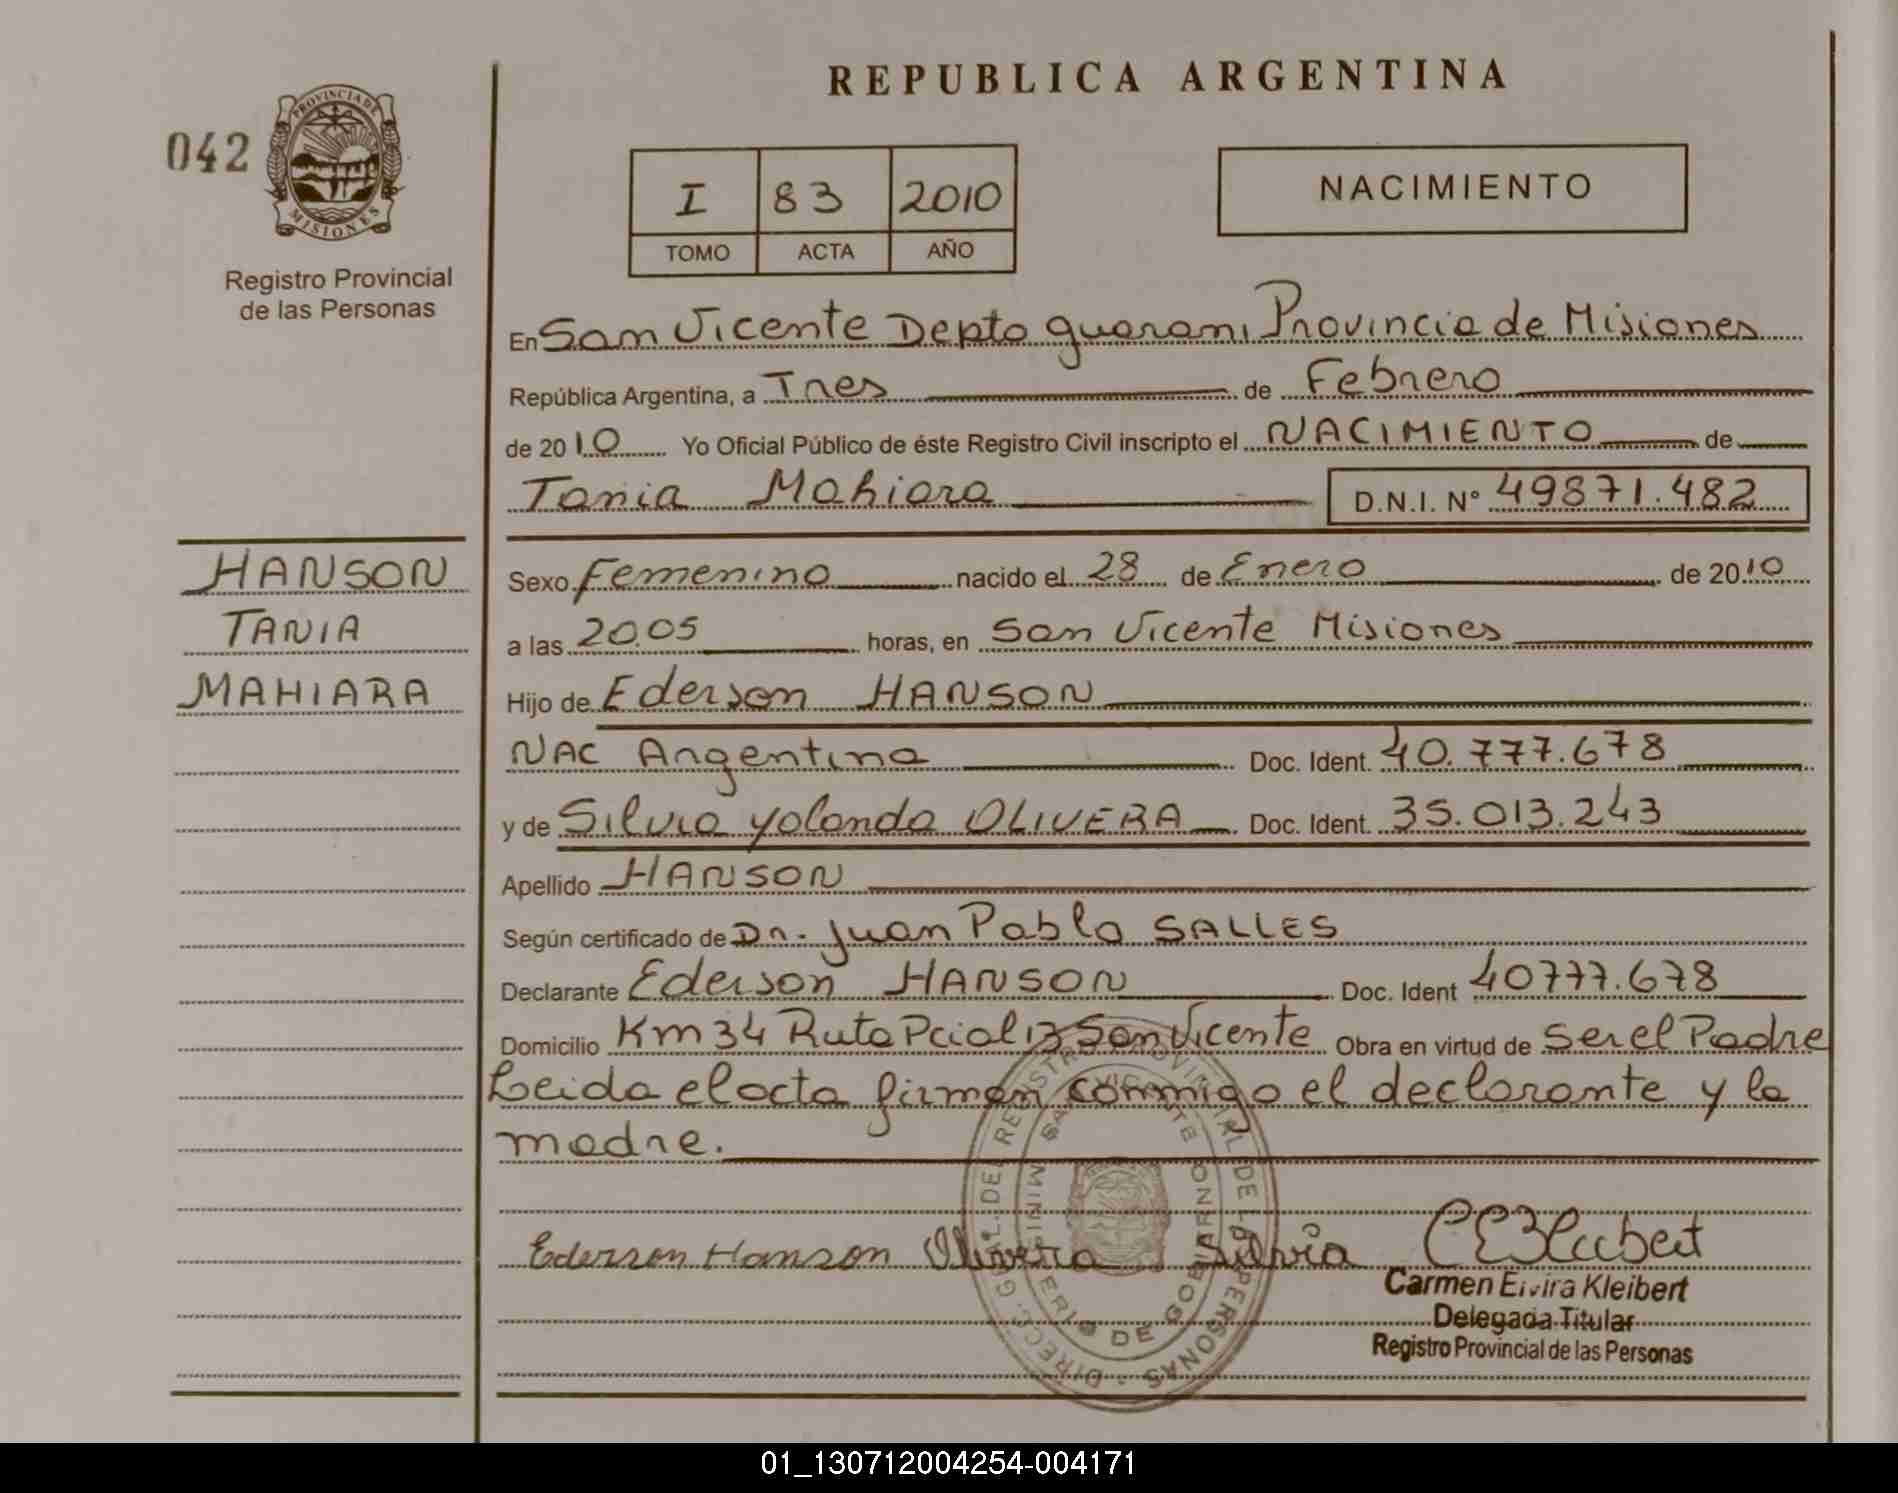 REPUBLICA ARGENTINA
042
PROVINCIA DE
MISIONES
Registro Provincial
de las Personas
I 83 2010
TOMO ACTA AÑO
NACIMIENTO
En San Vicente Depto guarani Provincia de Misiones
República Argentina, a Tres de Febrero
de 2010 Yo Oficial Público de éste Registro Civil inscripto el NACIMIENTO de
Tania Mahiara D.N.I. N° 49871.482
HANSON
TANIA
MAHIARA
Sexo Femenino nacido el 28 de Enero de 2010
a las 20.05 horas, en San Vicente Misiones
Hijo de Ederson HANSON
NAC Argentina Doc. Ident. 40.777.678
y de Silvia yolanda OLIVERA Doc. Ident. 35.013.243
Apellido HANSON
Según certificado de Dr. Juan Pablo SALLES
Declarante Ederson HANSON Doc. Ident 40777.678
Domicilio Km 34 Ruta Pcial 13 San Vicente Obra en virtud de Ser el Padre
Leida el acta firman conmigo el declarante y la
madre.
Ederson Hanson Olivera Silvia
Carmen Elvira Kleibert
Delegada Titular
Registro Provincial de las Personas
DIRECC. GRAL. DEL REGISTRO PROVINCIAL DE LAS PERSONAS
SAN VICENTE
MINISTERIO DE GOBIERNO
01_130712004254-004171